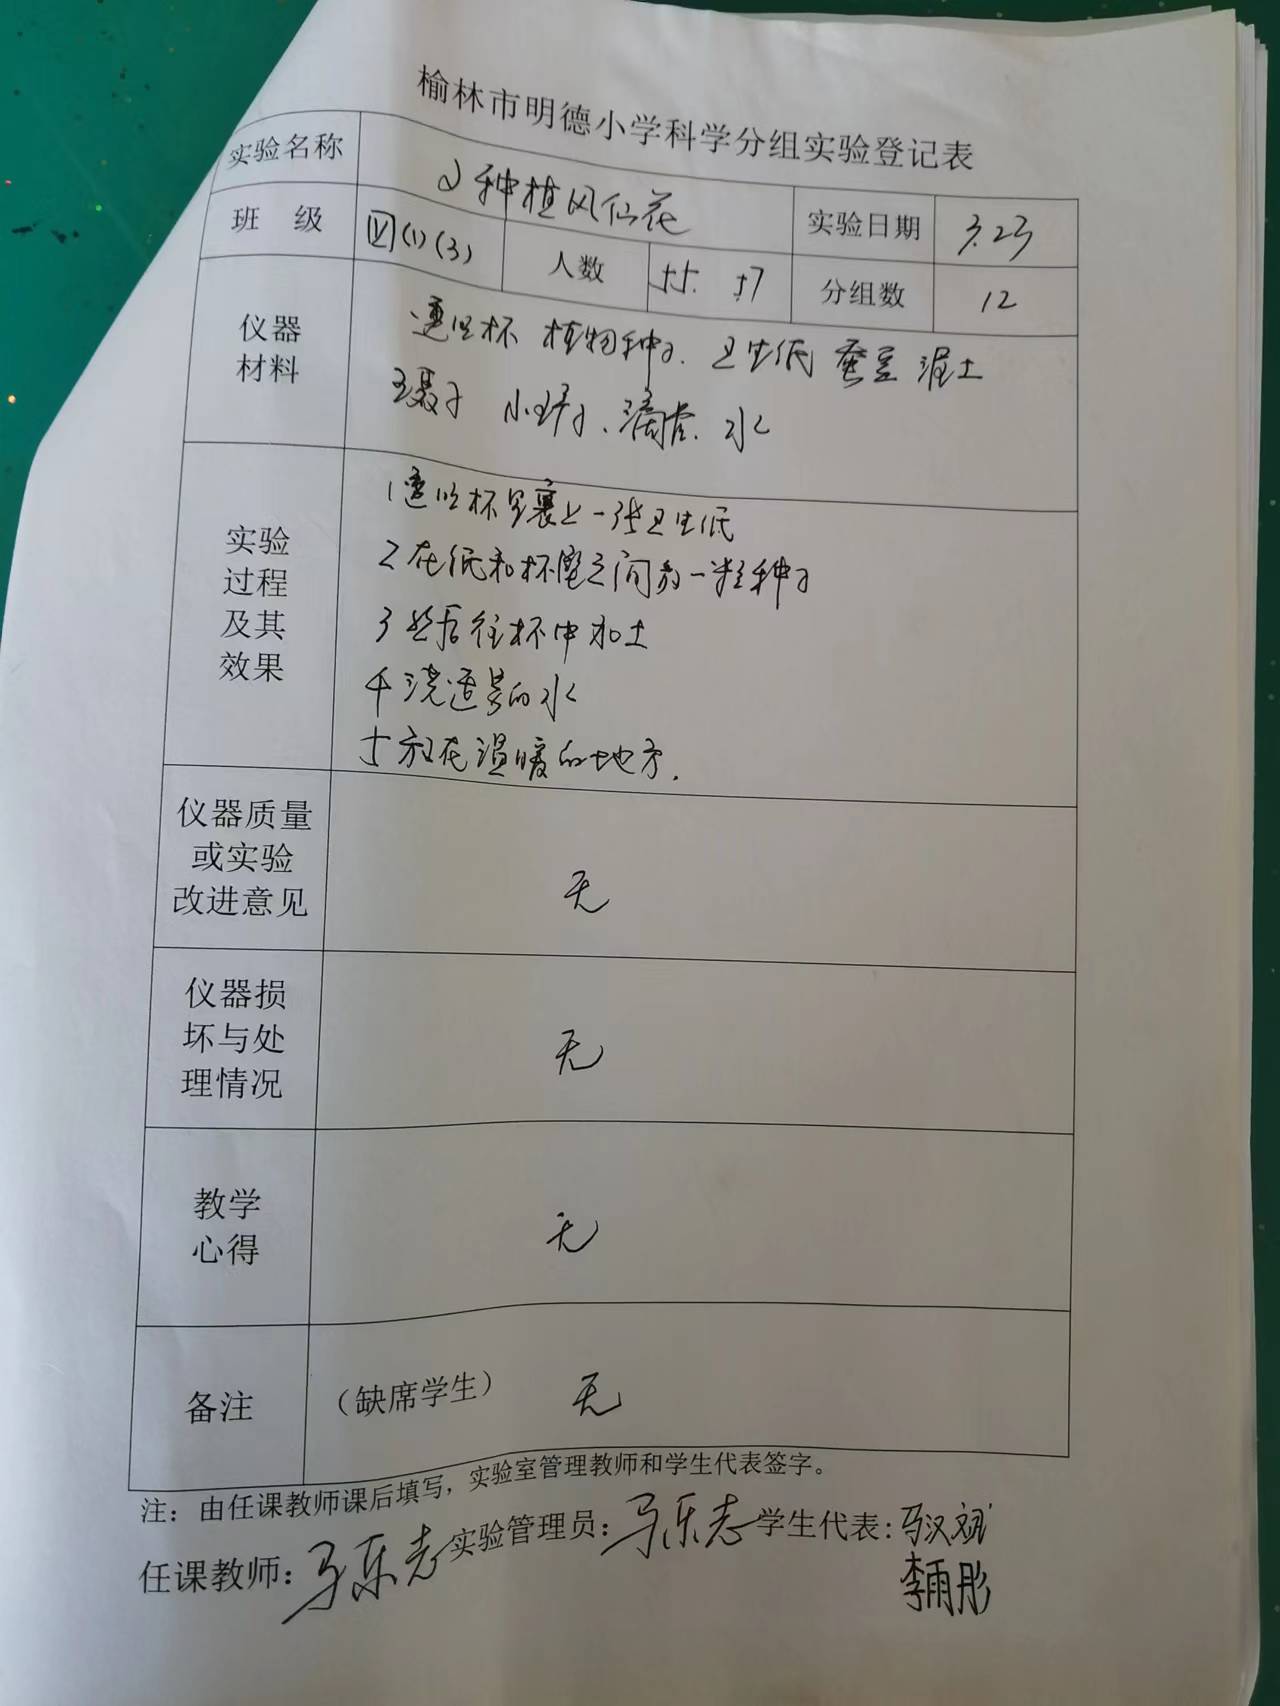 榆林市明德小学科学分组实验登记表
实验名称 2种植凤仙花 实验日期 3.23
班 级 Ⅳ(1)(3) 人数 55. 57 分组数 12
仪器材料 透明杯 植物种子、卫生纸 蚕豆 泥土
镊子 小铲子、滴管、水
实验过程及其效果
1透明杯里裹上一张卫生纸
2在纸和杯壁之间放一粒种子
3然后往杯中加土
4浇适量的水
5放在温暖的地方.
仪器质量或实验改进意见 无
仪器损坏与处理情况 无
教学心得 无
备注 (缺席学生) 无
注：由任课教师课后填写，实验室管理教师和学生代表签字。
任课教师：马乐志 实验管理员：马乐志 学生代表：马汉斌
李雨彤